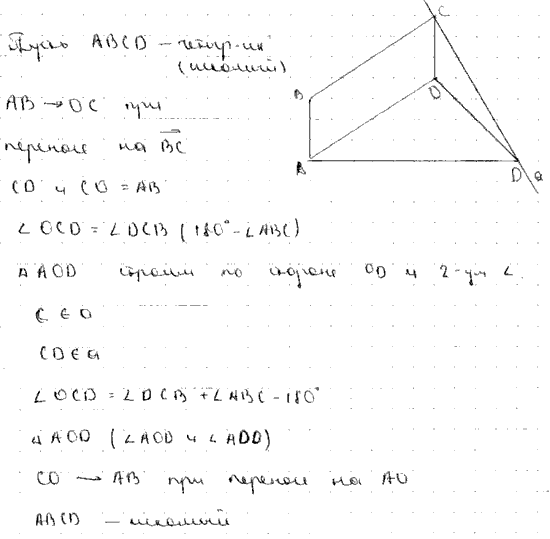 Пусть ABCD – четыр-ик
(искомый)
AB → OC при
переносе на BC
CD и CO = AB
∠OCD = ∠DCB (180° - ∠ABC)
△AOD строим по стороне OD и 2-ум ∠.
C ∈ a
CD ∈ a
∠OCD = ∠DCB + ∠ABC - 180°
△AOD (∠AOD и ∠ADO)
CO → AB при переносе на AO
ABCD – искомый
C
B
O
A
D
a